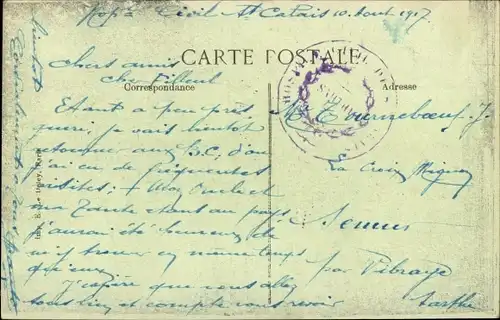 Hopal Civil St Calais 10 Aout 1917.
CARTE POSTALE
Correspondance
Adresse
Chers amis
Cher filleul
Etant a peu près
gueri, je vais bientot
retourner au B.C, d'ou
j'ai eu de frequentes
visites; Mon Oncle et
ma Tante etant au pays
j'aurai été heureux de
m'y trouver en meme temps
qu'eux
J'espère que vous allez
tous bien et compte vous revoir
Mr Tournebœuf. J.
La Croix
Semur
par Vibraye
Sarthe